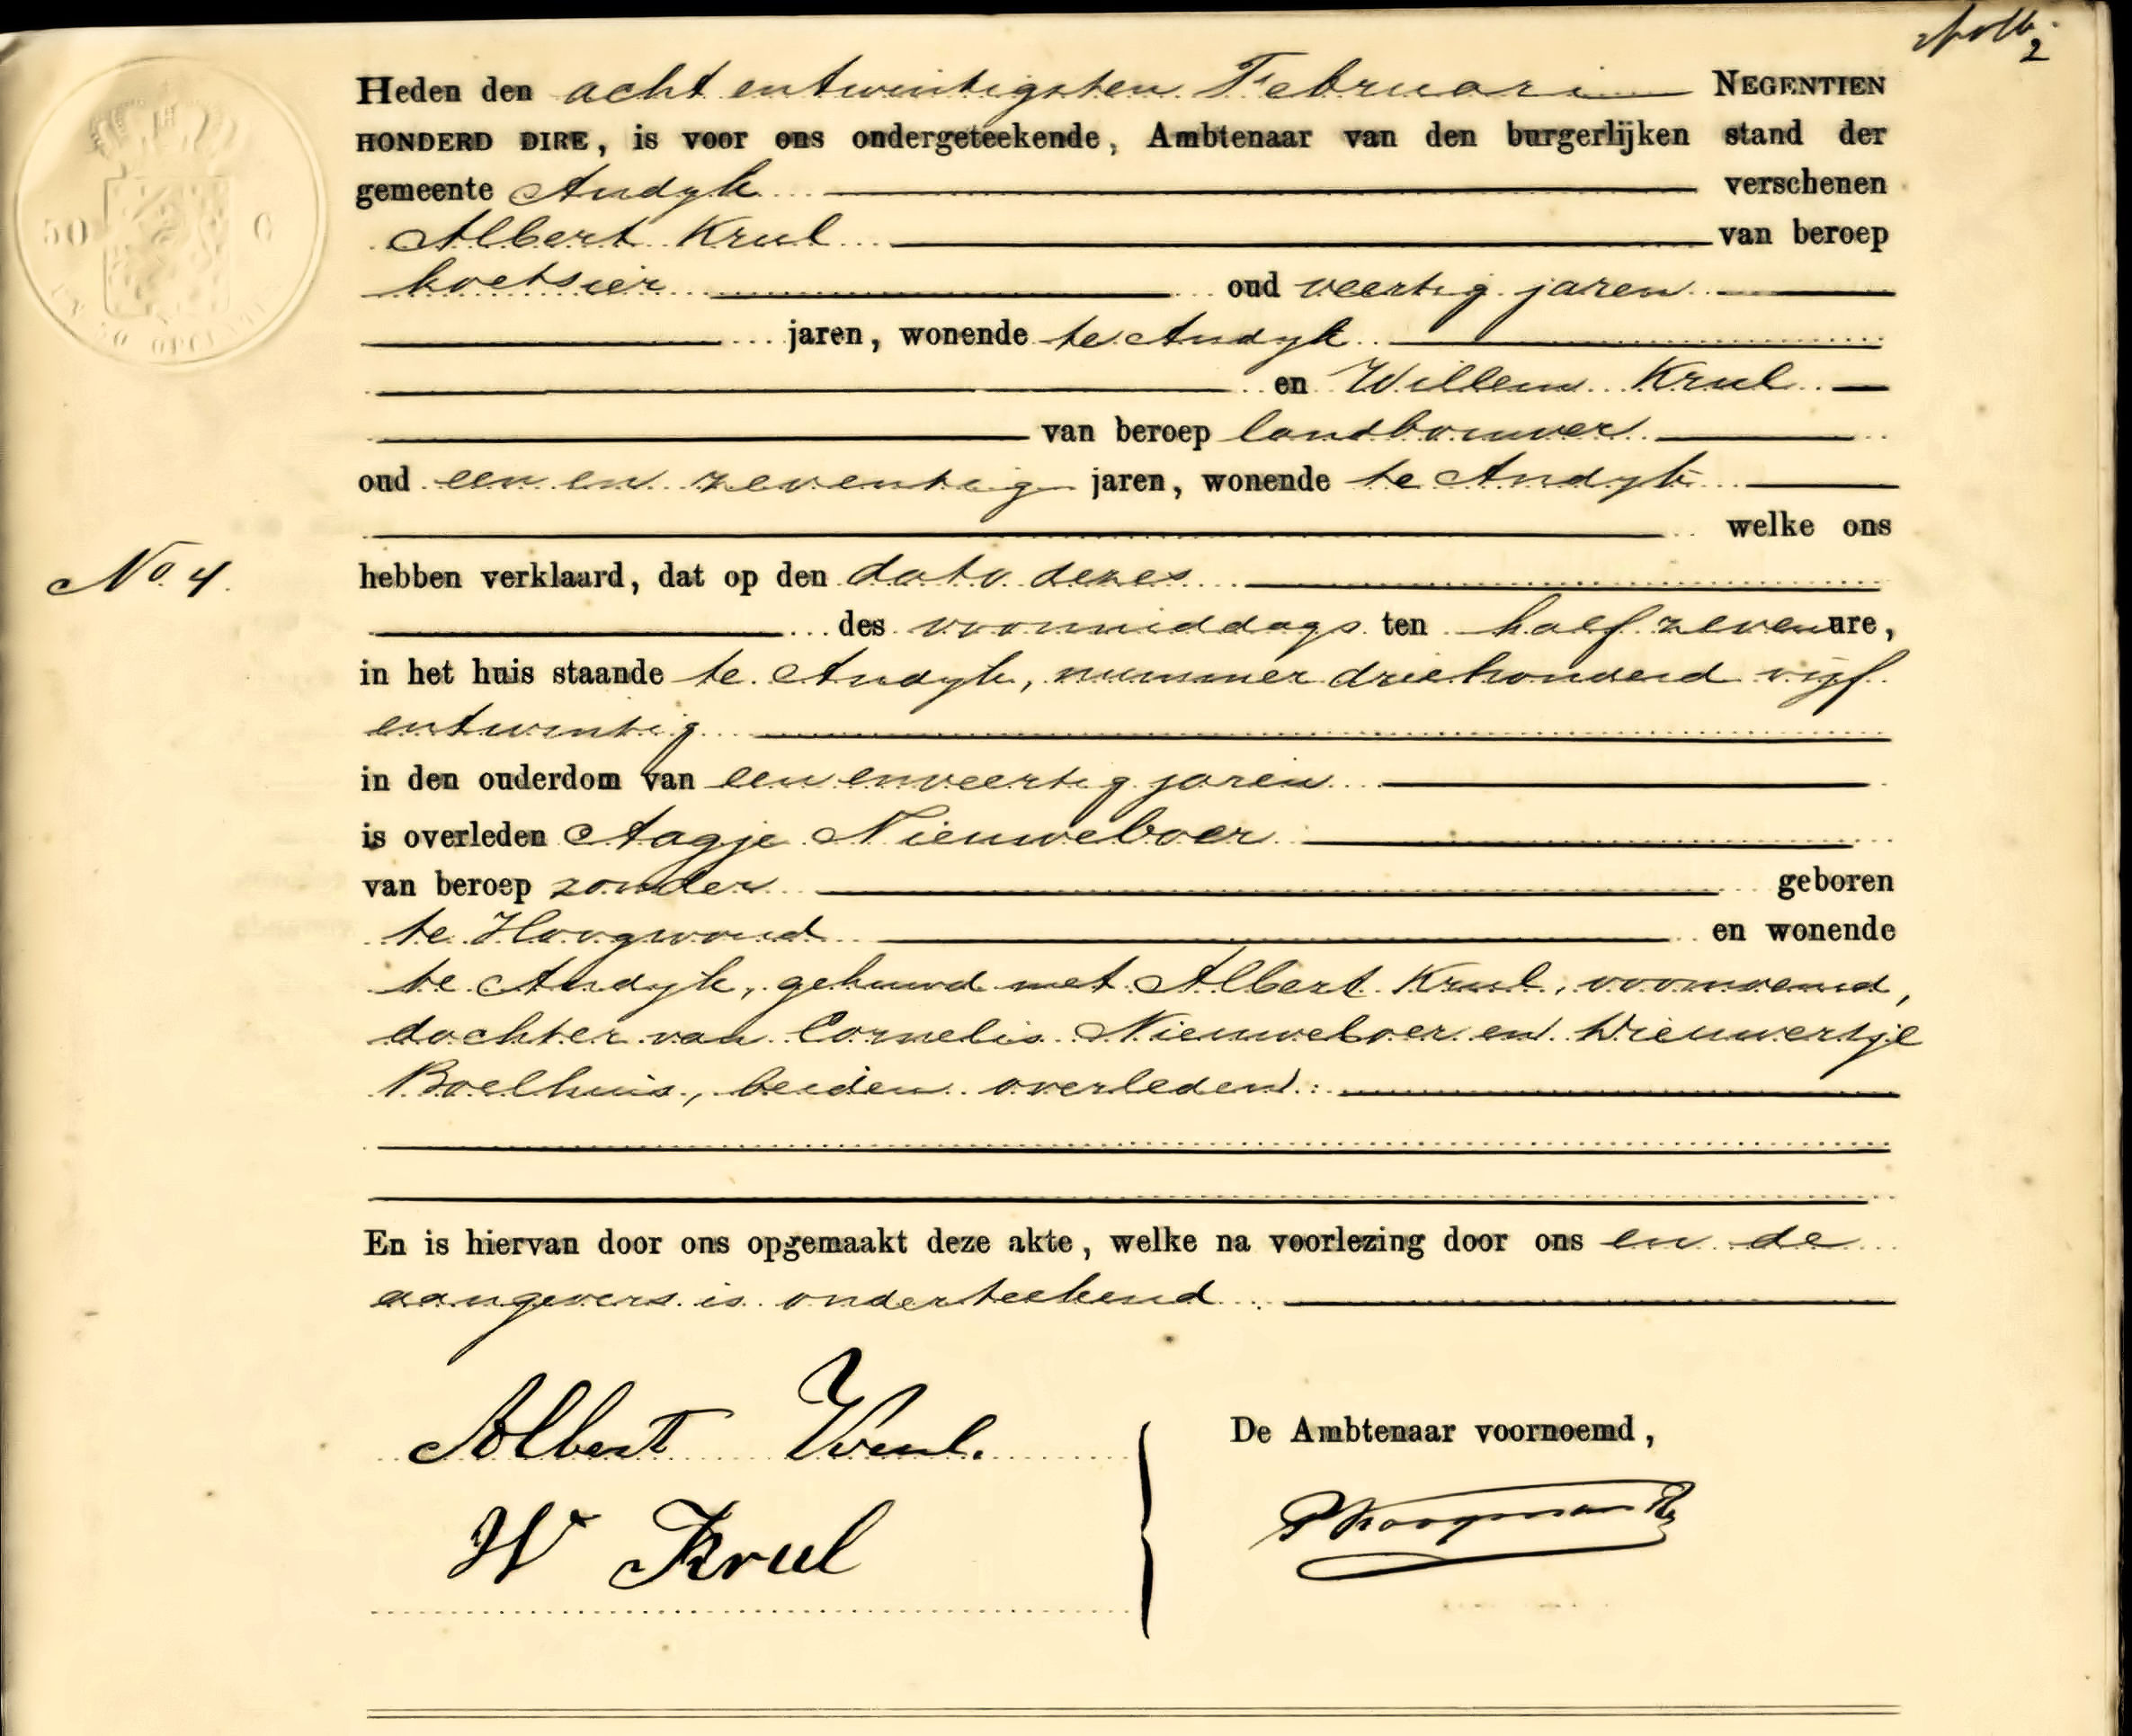 Heden den acht en twintigsten Februari NEGENTIEN
HONDERD DIRE, is voor ons ondergeteekende, Ambtenaar van den burgerlijken stand der
gemeente Andyk verschenen
Albert Krul van beroep
koetsier oud veertig jaren
jaren, wonende te Andyk
en Willem Krul
van beroep landbouwer
oud een en zeventig jaren, wonende te Andyk
welke ons
No. 4.
hebben verklaard, dat op den dato dezes
des voormiddags ten half zeven ure,
in het huis staande te Andyk, nummer driehonderd vijf
entwintig
in den ouderdom van een en veertig jaren
is overleden Aagje Nieuweboer
van beroep zonder geboren
te Hoogwoud en wonende
te Andyk, gehuwd met Albert Krul, voornoemd,
dochter van Cornelis Nieuweboer en Wieuwertje
Boelhuis, beiden overleden.
En is hiervan door ons opgemaakt deze akte, welke na voorlezing door ons en de
aangevers is onderteekend
Albert Krul.
De Ambtenaar voornoemd,
W Krul
50 C